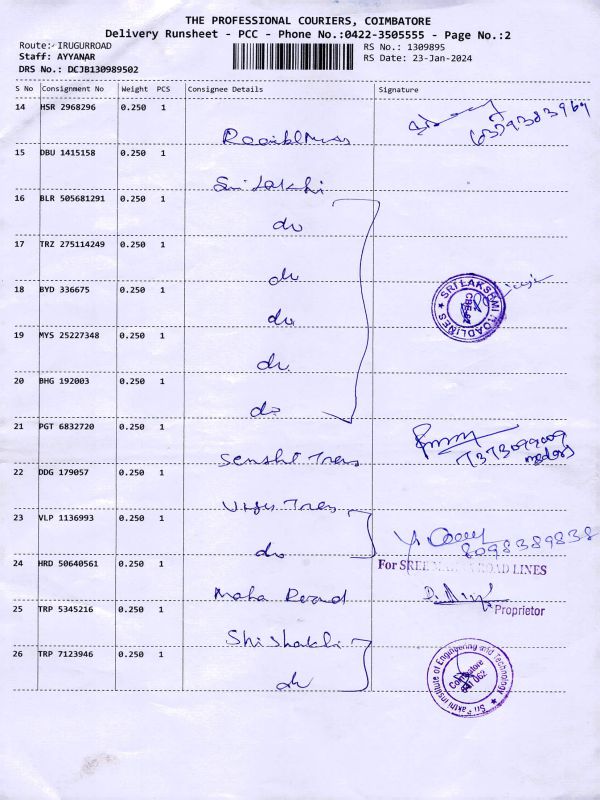 THE PROFESSIONAL COURIERS, COIMBATORE
Delivery Runsheet - PCC - Phone No.:0422-3505555 - Page No.:2
Route: IRUGURROAD
RS No.: 1309895
Staff: AYYANAR
RS Date: 23-Jan-2024
DRS No.: DCJB130989502
S No Consignment No Weight PCS Consignee Details Signature
14 HSR 2968296 0.250 1
6379383969
15 DBU 1415158 0.250 1
Sri Lakshi
16 BLR 505681291 0.250 1
do
17 TRZ 275114249 0.250 1
do
18 BYD 336675 0.250 1
SRI LAKSHMI ROADLINES
do
19 MYS 25227348 0.250 1
do
20 BHG 192003 0.250 1
do
21 PGT 6832720 0.250 1
7373099009
22 DDG 179057 0.250 1
23 VLP 1136993 0.250 1
do
8098389838
24 HRD 50640561 0.250 1
For SREE ROAD LINES
Maha Road
Proprietor
25 TRP 5345216 0.250 1
Shi Shakthi
26 TRP 7123946 0.250 1
do
Sri Sakthi Institute of Engineering and Technology
Coimbatore
641 062